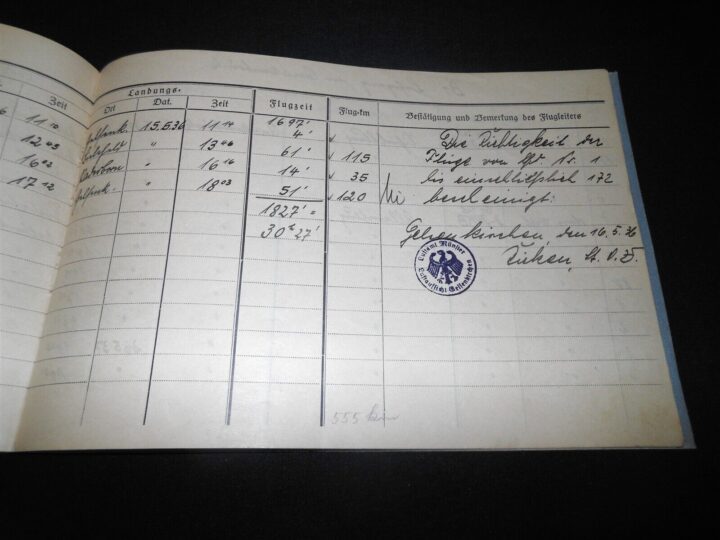 Landungs-
Zeit Ort Dat. Zeit Flugzeit Flug-km Bestätigung und Bemerkung des Flugleiters
1697'
11 10 15.5.36 11 14 4' Die Richtigkeit der
12 05 " 13 06 61' 115 Flüge von lfd Nr. 1
16 02 " 16 16 14' 35 bis einschließlich 172
17 12 " 18 03 51' 120 bescheinigt:
1827' =
30 St 27' Gelsenkirchen, den 16.5.36
Luftamt Münster
Luftaufsicht Gelsenkirchen
555 km